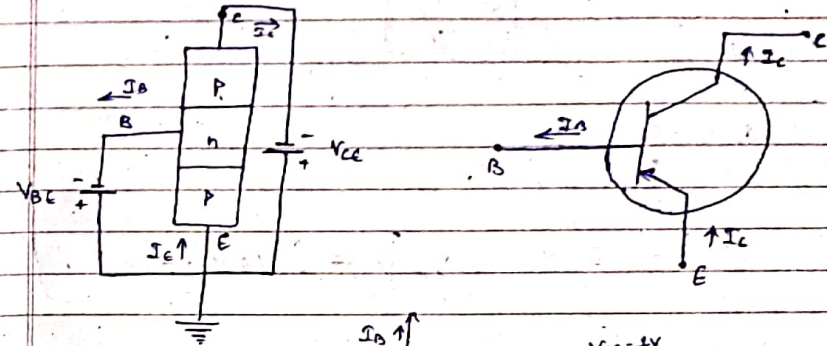 C
Ic
P
IB
B
n
- VCE
+
VBE -
+
P
IE↑ E
C
↑ Ic
IB
B
↑ Ic
E
IB ↑